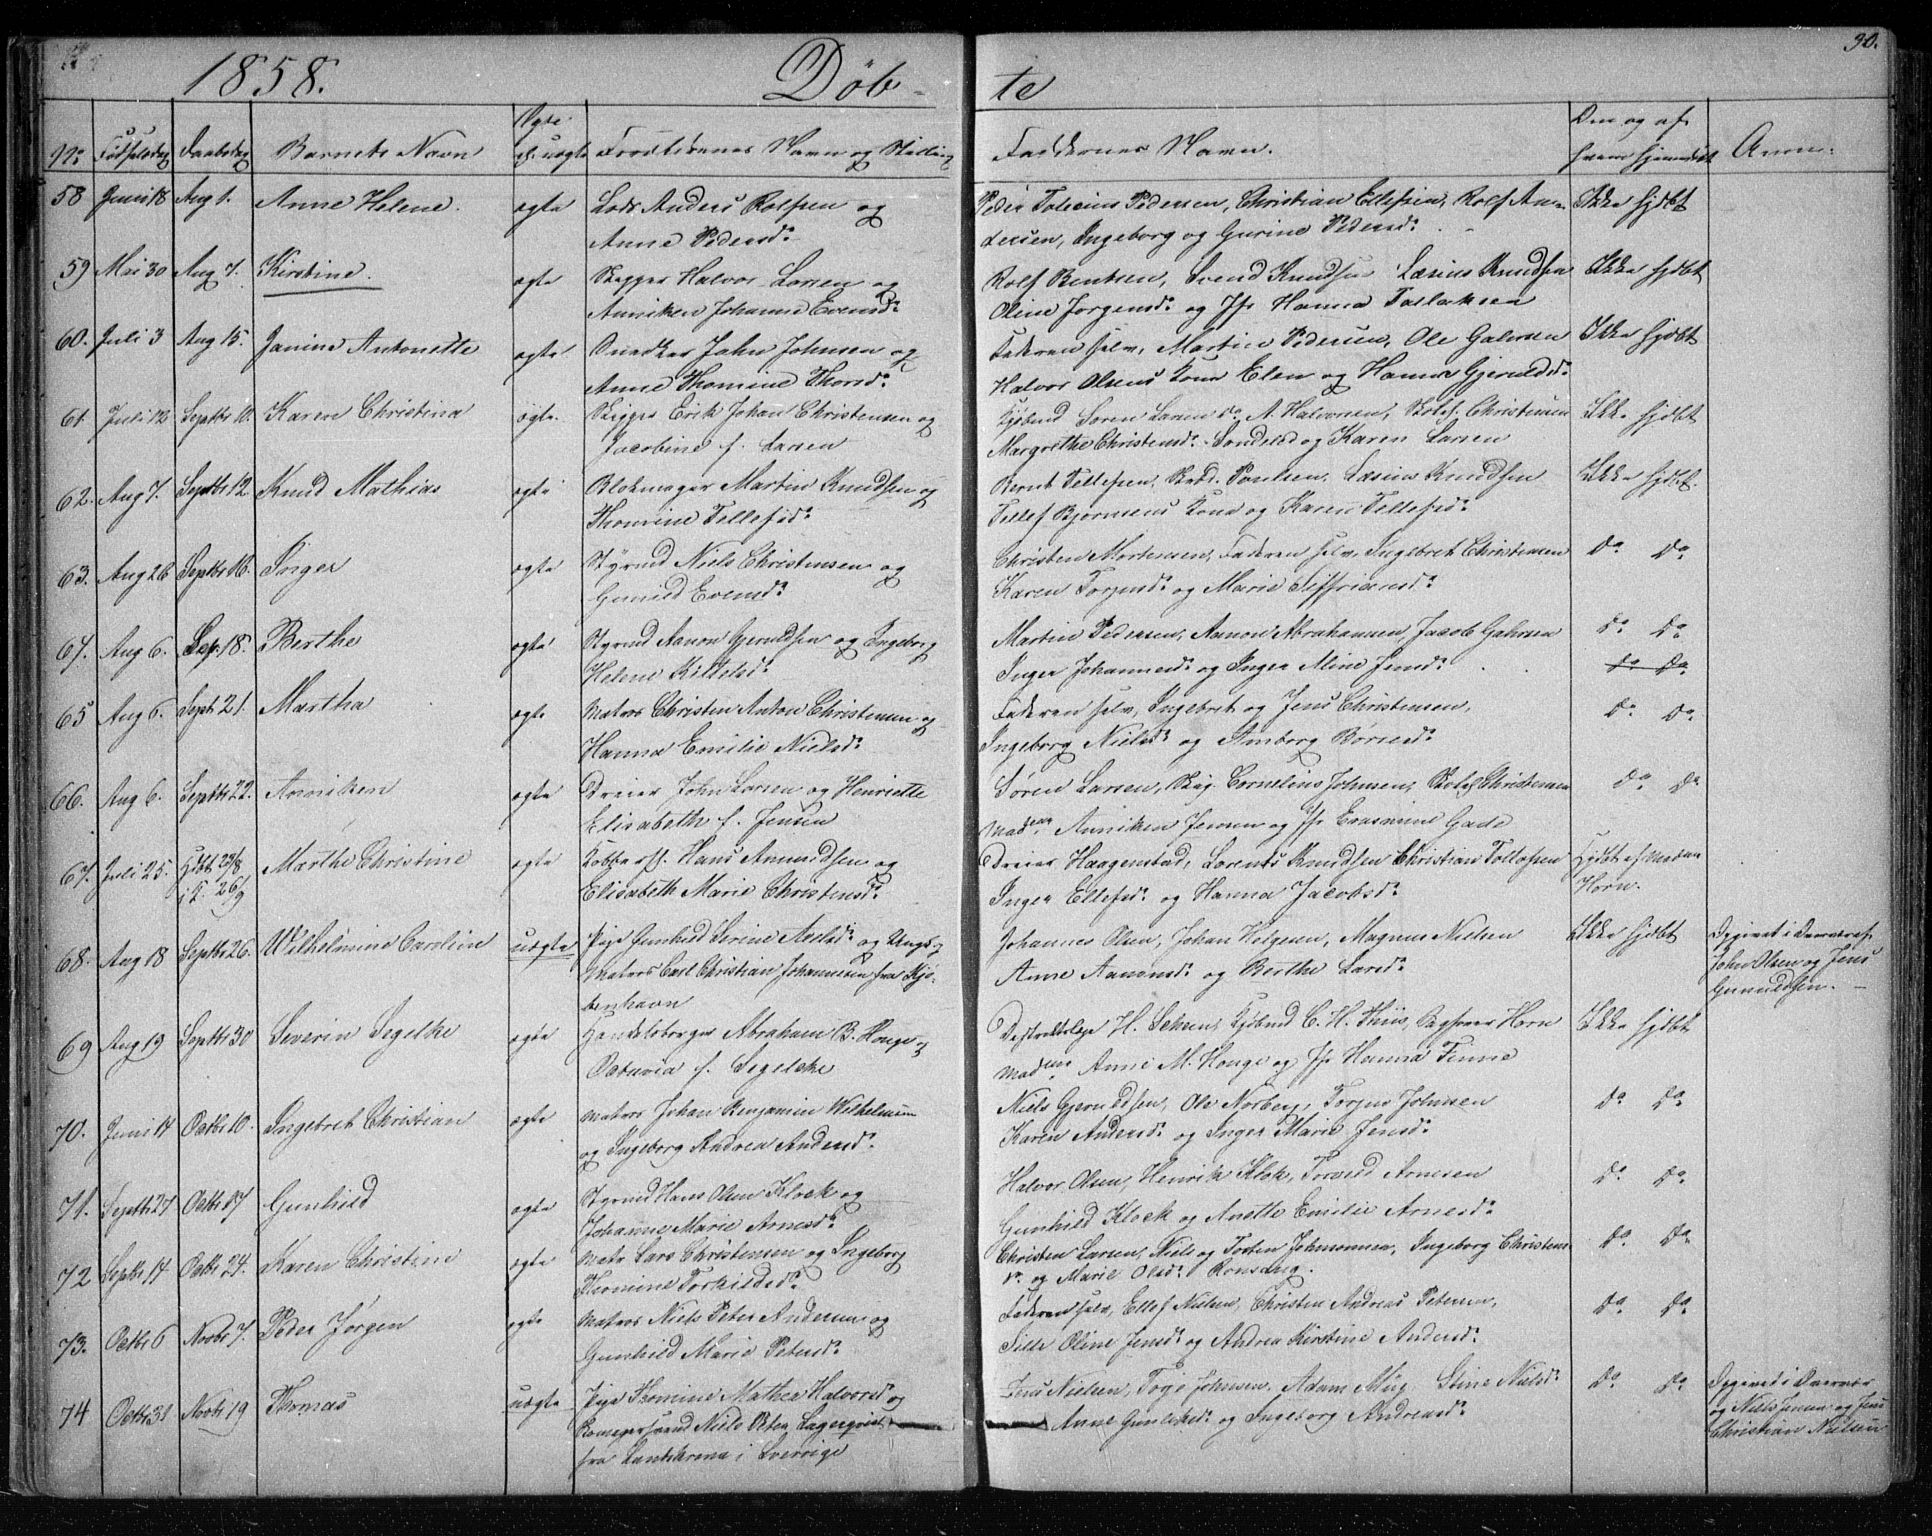 30.
1858. Døb- te
No Fødselsdag Daabsdag Barnets Navn Ægte el. uægte Forældrenes Navn og Stilling Faddernes Navn. Om og af hvem hjemmedøbt Anm.
58 Juni 18 Aug 1. Anne Helene. ægte Lods Anders Rolfsen og Peder Tolesius Pedersen, Christian Ellefsen, Rolf An- Ikke hjdbt
Anne Pedersd. dersen, Ingeborg og Gurine Pedersd.
59 Mai 30 Aug 7. Kirstine. ægte Skipper Halvor Larsen og Rolf Bentsen, Svend Knudsen Lasius Knudsen Ikke hjdbt
Anniken Johanne Evensd. Oline Jørgensd. og Jfr Hanna Tallaksen
60. Juli 3 Aug 15. Janine Antonette ægte Snedker John Johnsen og Faderen selv, Martin Pedersen, Ole Gulovsen Ikke hjdbt
Anne Thomine Thorsd. Halvor Olsens Kone Elen og Hanna Gjeruldsd.
61. Juli 12 Septbr 10. Karen Christina ægte. Skipper Erik Johan Christensen og Kjøbmd Søren Larsen do A. Halvorsen, Christensen Ikke hjdbt
Jacobine f. Larsen Margrethe Christensd. og Karen Larsen
62. Aug 7. Septbr 12 Knud Mathias ægte Blokmager Martin Knudsen og Bernt Tellefsen, Paulsen, Lasius Knudsen Ikke hjdbt.
Thomine Tellefsd. Tellef Bjørnsens Kone og Karen Tellefsd.
63. Aug 26 Septbr 16. Inger ægte Styrmd Niels Christensen og Christen Mortensen, Faderen selv, Ingebret Christensen Do Do
Gunild Evensd. Karen Torjusd. og Marie Siffriansd.
64. Aug 6. Sep. 18. Berthe ægte Styrmd Aanon Gjeruldsen og Ingeborg Martin Pedersen, Aanon Abrahamsen, Jacob Gahrsen Do Do
Helene Kittelsd. Inger Johannesd. og Inger Aline Jensd. Do Do
65 Aug 6. Septr 21. Martha ægte Matros Christen Anton Christensen og Faderen selv, Ingebret og Jens Christensen, Do Do
Hanna Emilie Nielsd. Ingeborg Nielsd. og Amborg Børresd.
66. Aug 6. Septbr 22. Anniken ægte Dreier John Larsen og Henriette Søren Larsen, Skip. Cornelius Johnsen, Christensen Do Do
Elisabeth f. Jensen Madme Anniken Jensen og Jfr Erasmine Gade
67. Juli 25. Hjdbt 29/8 i K. 26/9 Marthe Christine ægte Kobbersl. Hans Amundsen og Dreier Haagenstad, Lorents Knudsen Christian Tollofsen Hjdbt af Madam
Elisabeth Marie Christensd. Inger Ellefsd. og Hanna Jacobsd. Horn.
68. Aug 18 Septbr 26. Wilhelmine Caroline uægte Pige Gunhild Serine Axelsd. og Ungk. Johannes Olsen, Johan Helgesen, Magnus Nielsen Ikke hjdbt Opgivet i Overvær af
Matros Carl Christian Johannesen fra Kjø- Anne Aanonsd. og Berthe Larsd. John Olsen og Jens
benhavn Gunnildsen.
69 Aug 19 Septbr 30 Severin Segelke ægte Handelsborger Abraham B. Houge og Distriktslæge H. Kjøbmd C. H. Thiis, Horn Ikke hjdbt
Octavia f. Segelcke Madme Anne M. Houge og Jfr Hanna Finne
70. Juni 14 Octbr 10. Ingebret Christian ægte Matros Johan Benjamin Wilhelmsen Niels Gjeruldsen, Ole Norberg, Torjus Johnsen Do Do
og Ingeborg Andrea Andersd. Karen Andersd. og Inger Marie Jensd.
71. Septbr 27 Octbr 17 Gunhild ægte Styrmd Hans Olsen Klock og Halvor Olsen, Henrik Klok, Torvild Arnesen Do Do
Johanne Marie Arnesd. Gunhild Klock og Anette Emilie Arnesd.
72 Septbr 14 Octbr 24. Karen Christine ægte Matr. Lars Christensen og Ingeborg Christen Larsen, Niels og Torsten Johannesen, Ingeborg Christens- Do Do
Thomine Torkildsd. d. og Marie Olsd. Ronsang.
73. Octbr 6 Novbr 7. Peder Jørgen ægte Matros Niels Peter Andersen og Faderen selv, Ellef Nielsen, Christen Andreas Petersen, Do Do
Gunhild Marie Petersd. Sille Oline Jensd. og Andrea Kirstine Andersd.
74 Octbr 31 Novbr 19 Thomas uægte Pige Thomine Mathea Halvorsd. og Jens Nielsen, Toge Johnsen, Adam Müg Stine Nielsd. Do Do Opgivet i Overvær
Niels Peter Lagerqvist Anne Gunildsd. og Ingeborg Andreasd. og Niels Jensen og Jens
fra Landskrona i Sverrige Christian Nielsen